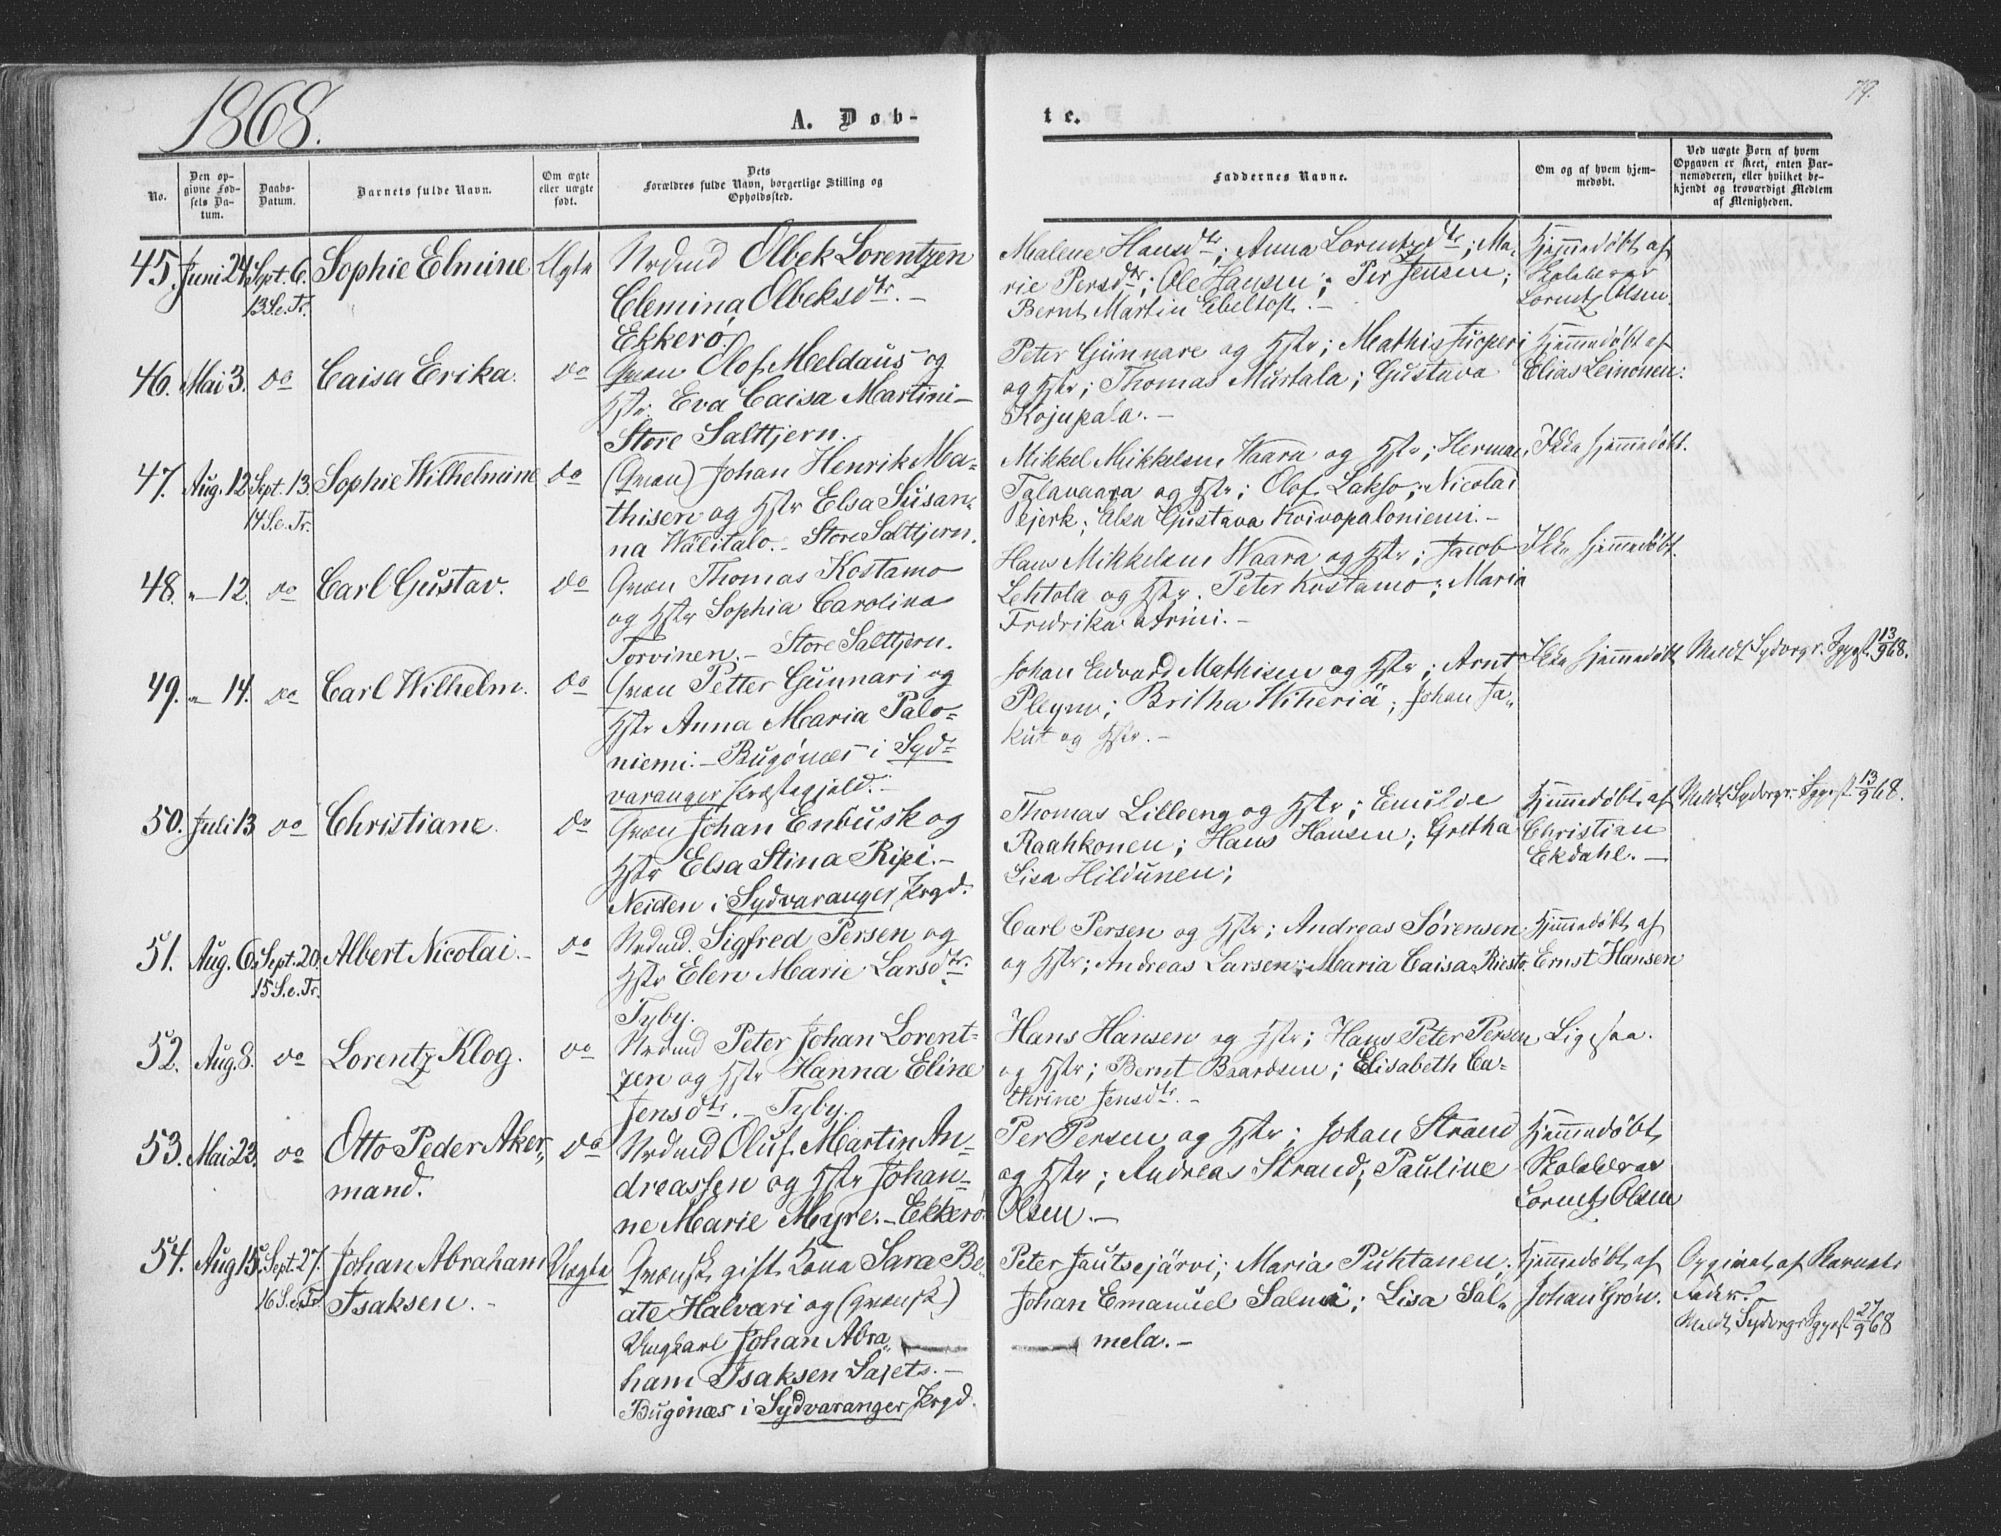 1868.
A. Døb-
te.
79.
No.
Den op-
givne Fød-
sels Da-
tum.
Daabs-
Datum.
Barnets fulde Navn.
Om ægte
eller uægte
født.
Dets
Forældres fulde Navn, borgerlige Stilling og
Opholdssted.
Faddernes Navne.
Om og af hvem hjem-
medøbt.
Ved uægte Børn af hvem
Opgaven er skeet, enten Bar-
nemoderen, eller hvilket be-
kjendt og troværdigt Medlem
af Menigheden.
45. Juni 24. Sept. 6. Sophie Elmine Ægte Nrdmd Olbek Lorentzen
13 S. e. Tr.
Clemina Olbeksdtr. –
Ekkerø.
Malene Hansdtr; Anna Lorentzdtr; Ma-
rie Persdtr; Ole Hansen; Per Jensen;
Bernt Martin Ebeltoft. –
Hjemmedøbt af
Skolelærer
Lorentz Olsen.
46. Mai 3. do Caisa Erika. do Qvæn Olof Meldaus og
Hstr. Eva Caisa Martini –
Store Salttjern.
Peter Gunnare og Hstr; Mathis Juoperi
og Hstr; Thomas Murtala; Gustava
Kojupala. –
Hjemmedøbt af
Elias Leinonen.
47. Aug. 12. Sept. 13. Sophie Wilhelmine do (Qvæn) Johan Henrik Ma-
14 S. e. Tr.
thisen og Hstr Elsa Susan-
na Wälitalo. – Store Salttjern.
Mikkel Mikkelsen Waara og Hstr; Herman
Talavaara og Hstr; Olof Lakso; Nicolai
Pejerk; Elsa Gustava Kvivopaloniemi. –
Ikke hjemmedøbt.
48. " – 12. do Carl Gustav. do Qvæn Thomas Kostamo
og Hstr Sophia Carolina
Torvinen. – Store Salttjern.
Hans Mikkelsen Waara og Hstr; Jacob
Lehtola og Hstr. Peter Kostamo; Maria
Fredrika Arini. –
Ikke hjemmedøbt.
49. " – 14. do Carl Wilhelm. do Qvæn Petter Gunnari og
Hstr Anna Maria Palo-
niemi. – Bugønæs i Syd-
varanger Præstegjeld. –
Johan Edvard Mathisen og Hstr; Arnt
Pleym; Britha Wiheriä; Johan Ja-
kut og Hstr. –
Ikke hjemmedøbt
Meldt Sydvrgr. Sgpst 13/9 68.
50. Juli 13 do Christiane. do Qvæn Johan Enbusk og
Hstr Elsa Stina Ripi. –
Neiden i Sydvaranger Prgd.
Thomas Lilleeng og Hstr; Emilde
Raahkonen; Hans Hansen; Gretha
Lisa Hildunen;
Hjemmedøbt af
Christian
Ekdahl. –
Meldt Sydvrgr. Sgpst 13/9 68.
51. Aug. 6. Sept. 20. Albert Nicolai. – do Nrdmd. Sigfred Persen og
15 S. e. Tr.
Hstr Elen Marie Larsdtr.
Tyby.
Carl Persen og Hstr; Andreas Sørensen
og Hstr; Andreas Larsen; Maria Caisa Riesto.
Hjemmedøbt af
Ernst Hansen
52. Aug 8. do Lorentz Klog. do Nrdmd Peter Johan Lorent-
zen og Hstr Hanna Eline
Jensdtr. – Tyby.
Hans Hansen og Hstr; Hans Peter Persen
og Hstr; Bernt Baardsen; Elisabeth Ca-
thrine Jensdtr. –
Ligesaa.
53. Mai 23. do Otto Peder Aker- do Nrdmd Oluf Martin An-
mand.
dreassen og Hstr Johan-
ne Marie Myre. – Ekkerø
Per Persen og Hstr; Johan Strand
og Hstr; Andreas Strand; Pauline
Olsen. –
Hjemmedøbt
Skolelærer
Lorentz Olsen
54. Aug 15. Sept. 27. Johan Abraham Uægte Qvænsk gift Kone Sara Be-
16 S. e. Tr. Isaksen. –
ate Halvari og (qvænsk)
Ungkarl Johan Abra-
ham Isaksen Sajets. –
Bugønæs i Sydvaranger Prgd.
Peter Jautsejärvi; Maria Puhtanen;
Johan Emanuel Salmi; Lisa Sal-
mela. –
Hjemmedøbt af
Johan Grøn.
Opgivet af Barnets
Fader. –
Meldt Sydvrgr Sgpst 27/9 68